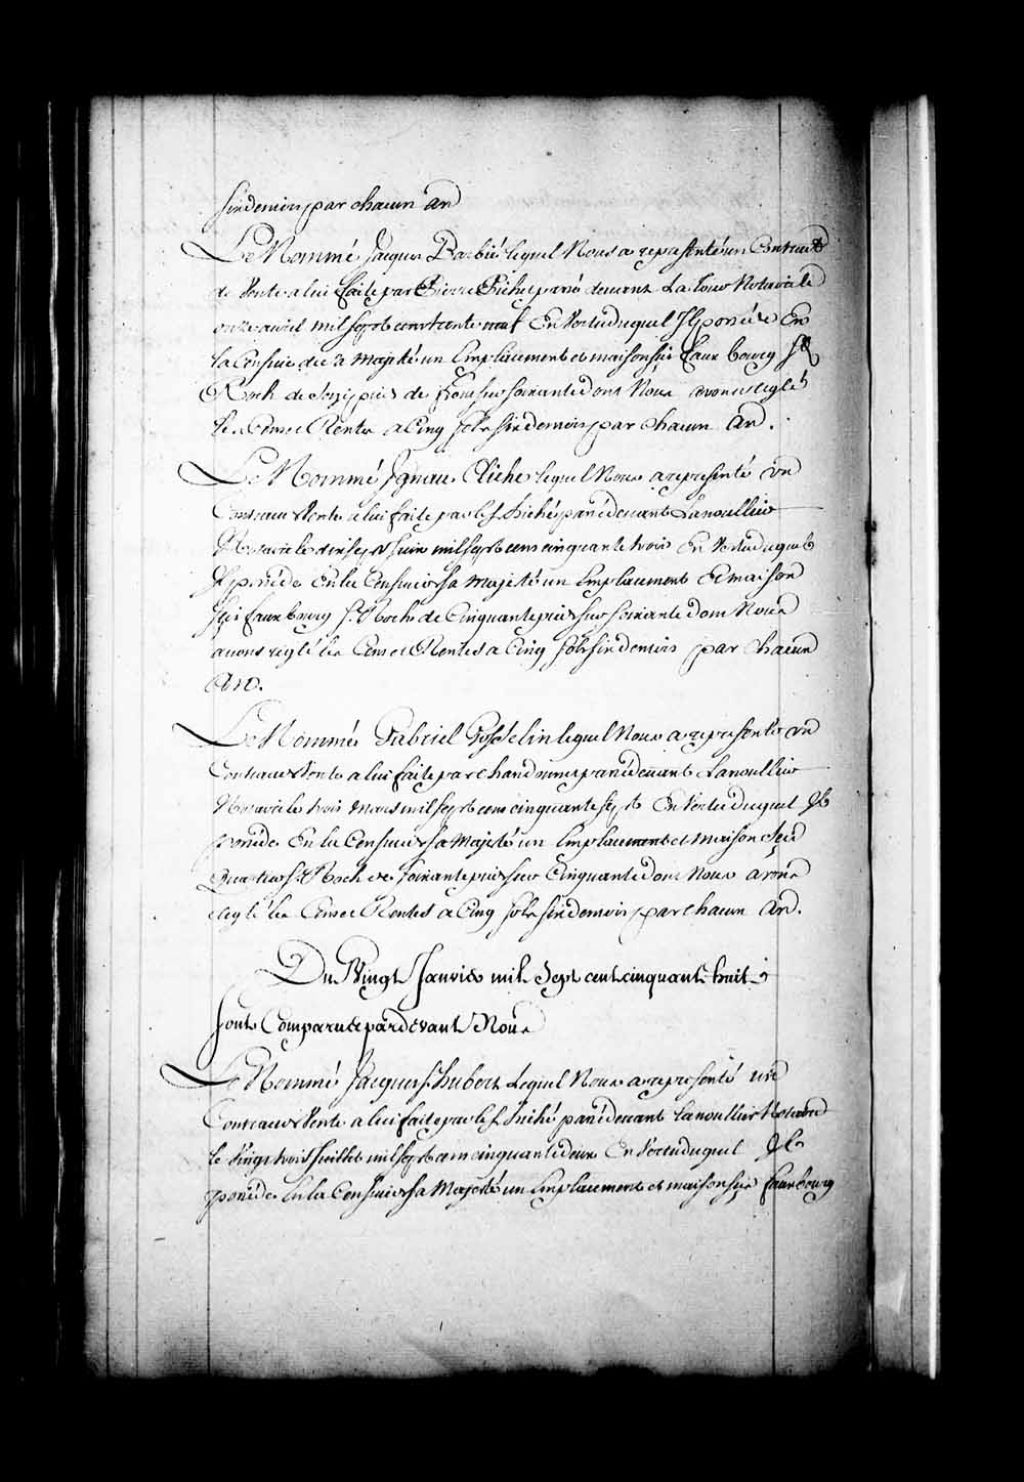 six deniers par chacun an
Le Nommé Jacques Barbié lequel Nous a representé un Contract
de Vente a lui faite par Pierre passé devant La Tour Notaire le
onze avril mil sept cent trente neuf En Vertu duquel Il possede En
la Censive de Sa Majesté un Emplacement et maison sis faux bourg St
Roch de pieds de front sur soixante dont Nous avons reglé
les Cens et Rentes a Cinq sols six deniers par chacun An.
Le Nommé Ignace Cliche lequel Nous a representé un
Contract de Vente a lui faite par le S. hiché passé devant Lanoullier
Notaire le dix sept Juin mil sept cens cinquante trois En Vertu duquel
Il possede En la Censive de Sa Majesté un Emplacement Et maison
sis faux bourg St Roch de Cinquante pieds sur soixante dont Nous
avons reglé les Cens et Rentes a Cinq sols six deniers par chacun
An.
Le Nommé Gabriel Gosselin lequel Nous a representé un
Contract de Vente a lui faite par passé devant Lanoullier
Notaire le trois Mars mil sept cens cinquante sept En Vertu duquel Il
possede En la Censive de Sa Majesté un Emplacement et maison sis
Quartier St Roch de soixante pieds sur Cinquante dont Nous avons
reglé les Cens et Rentes a Cinq sols six deniers par chacun An.
Du Vingt Janvier mil Sept cent cinquante huit
Sont Comparüe pardevant Nous
Le Nommé Jacques hubert Lequel Nous a representé un
Contract de Vente a lui faite par le S. hiché passé devant Lanoullier Notaire
le Vingt trois Juillet mil sept cens cinquante deux En Vertu duquel Il
possede En la Censive de Sa Majesté un Emplacement et maison sis faux bourg